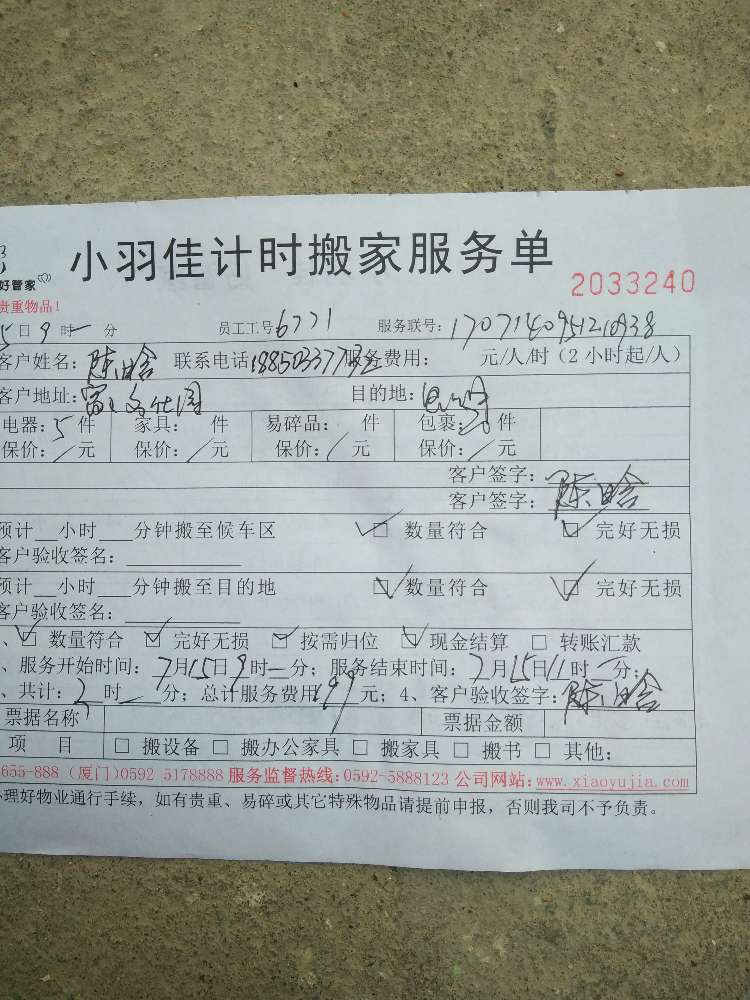 小羽佳计时搬家服务单
好管家
2033240
贵重物品！
5日9时一分 员工工号6771 服务联号：
客户姓名： 联系电话 服务费用： 元/人/时（2小时起/人）
客户地址： 目的地：
电器：5件 家具： 件 易碎品： 件 包裹： 件
保价：/元 保价：/元 保价：/元 保价：/元
客户签字：
客户签字：
预计__小时___分钟搬至候车区 数量符合 完好无损
客户验收签名：
预计__小时___分钟搬至目的地 数量符合 完好无损
客户验收签名：
、数量符合 完好无损 按需归位 现金结算 □ 转账汇款
、服务开始时间：7月15日9时一分；服务结束时间：7月15日11时一分；
、共计：2时一分；总计服务费用 元；4、客户验收签字：
票据名称 票据金额
项 目 □ 搬设备 □ 搬办公家具 □ 搬家具 □ 搬书 □ 其他：
655-888 (厦门)0592 5178888 服务监督热线：0592-5888123 公司网站：www.xiaoyujia.com
理好物业通行手续，如有贵重、易碎或其它特殊物品请提前申报，否则我司不予负责。